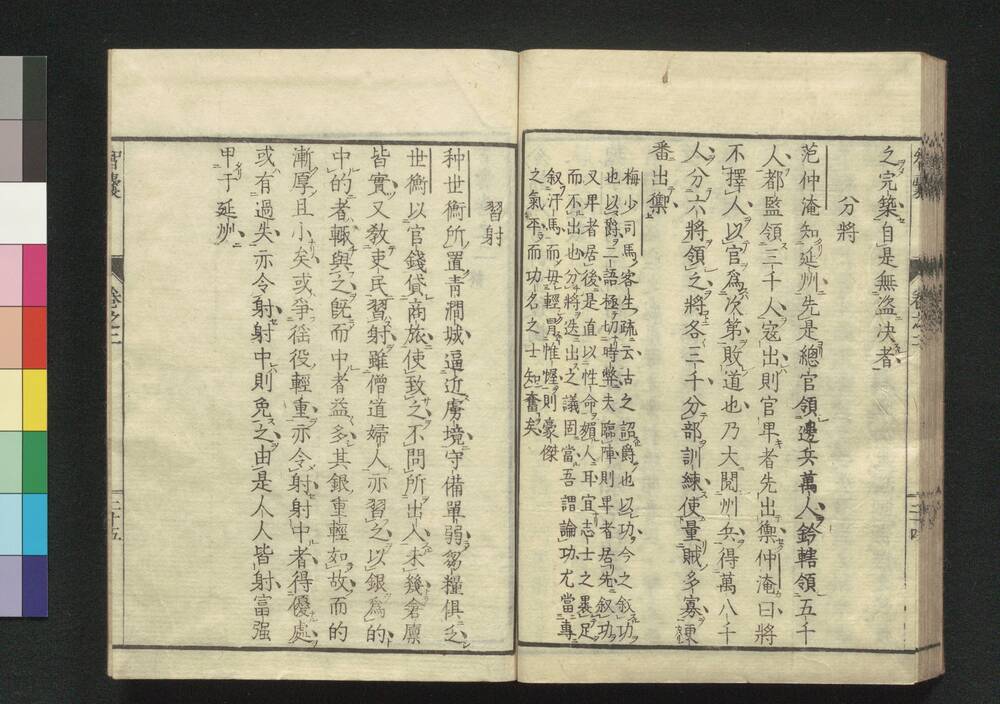 之完築自是無盗決者
分將
范仲淹知延州先是總官領邊兵萬人鈐轄領五千
人都監領三千人寇出則官卑者先出禦仲淹曰將
不擇人以官爲次第敗道也乃大閲州兵得萬八千
人分六將領之將各三千分部訓練使量賊多寡更
番出禦
梅少司馬客生疏云古之詔爵也以功今之叙功
也以爵二語極切時弊夫臨陣則卑者居先叙功
又卑者居後是直以性命媚人耳宜志士之裹足
而不出也分將迭出之議固當吾謂論功尤當專
叙汗馬而毋輕冐帷幄則豪傑
之氣平而功名之士知奮矣
習射
种世衡所置青澗城逼近虜境守備單弱芻糧俱乏
世衡以官錢貸商旅使致之不問所出入未幾倉廪
皆實又敎吏民習射雖僧道婦人亦習之以銀爲的
中的者輙與之旣而中者益多其銀重輕如故而的
漸厚且小矣或爭徭役輕重亦令射射中者得優處
或有過失亦令射射中則免之由是人人皆射富强
甲于延州
智囊
卷之二
二十五